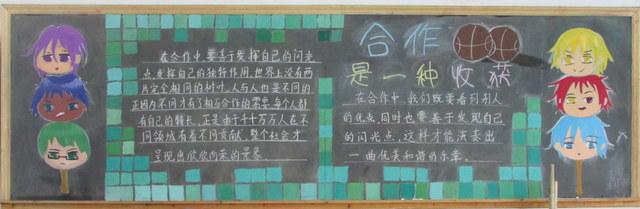 在合作中,要善于发挥自己的闪光
点,发挥自己的独特作用。世界上没有两
片完全相同的树叶,人与人也是不同的。
正因为不同才有了相互合作的需要,每个人都
有自己的特长,正是由于千千万万人在不
同领域有着不同贡献,整个社会才
呈现出欣欣向荣的景象
合作
是一种收获
在合作中,我们既要看到别人
的优点,同时也要善于发现自己
的闪光点,这样才能演奏出
一曲优美和谐的乐章。